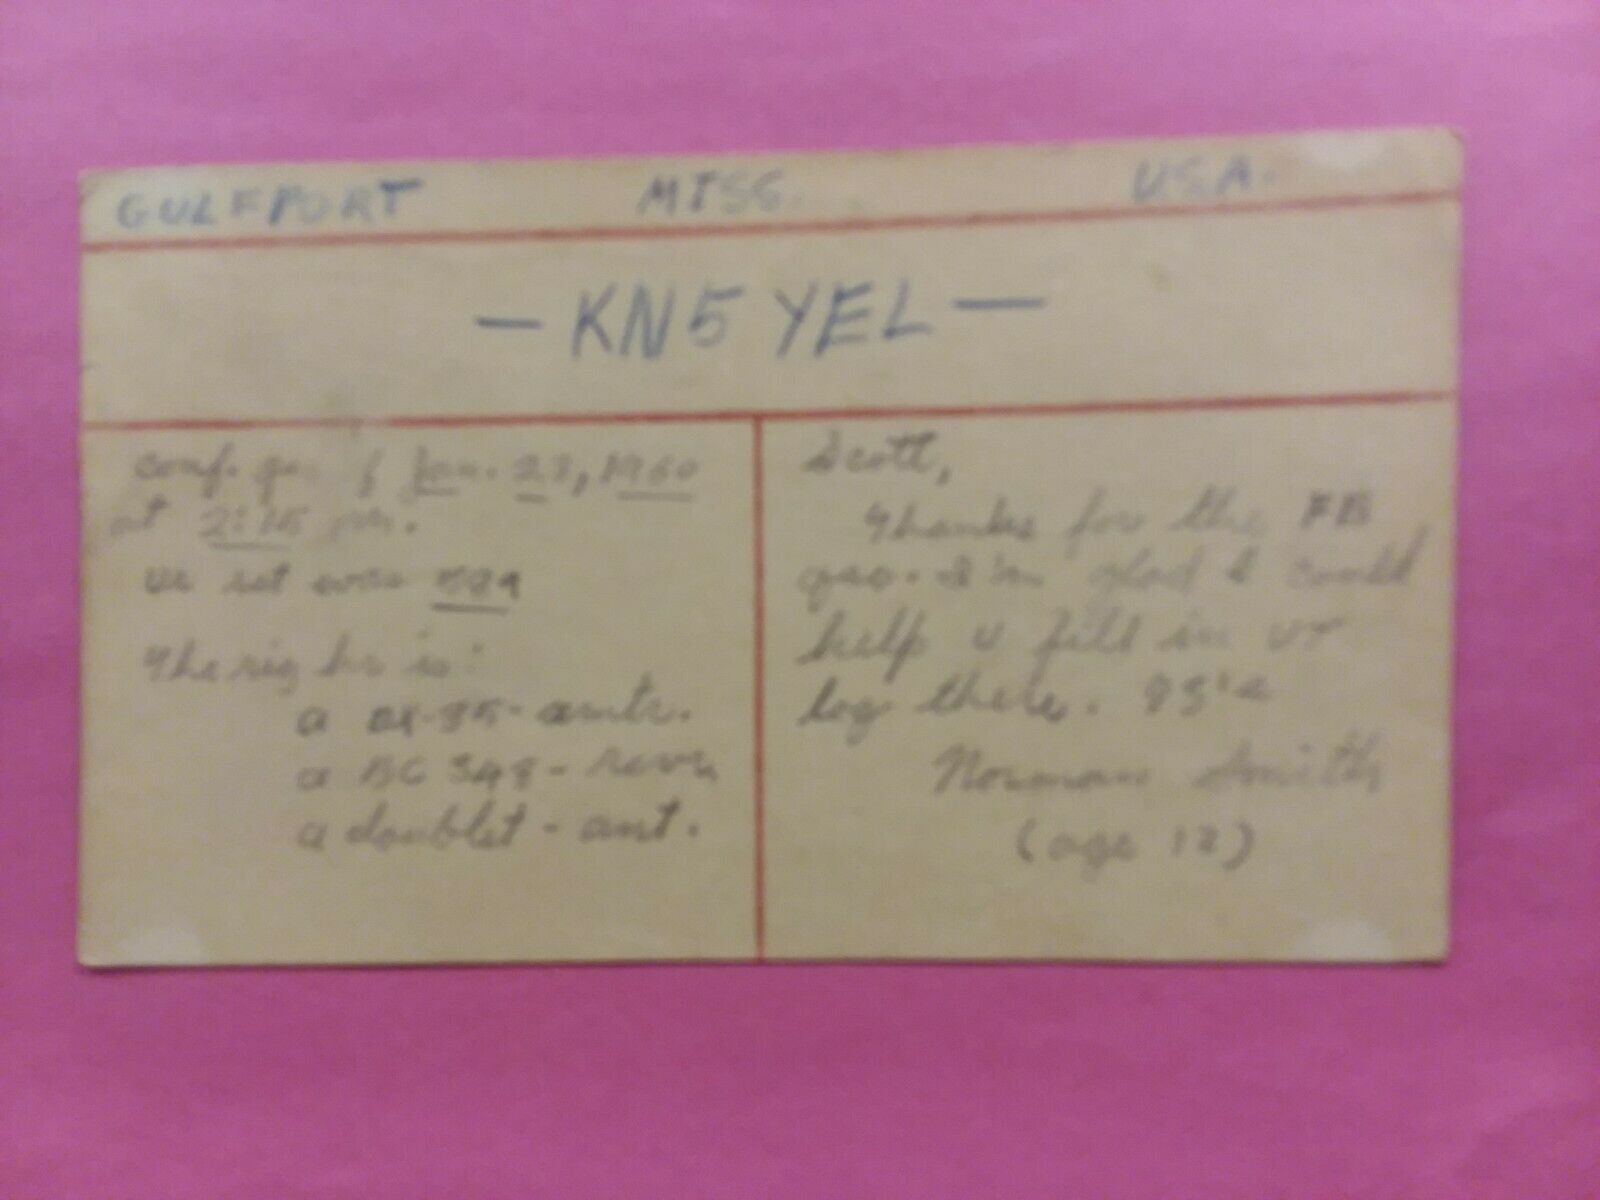 GULFPORT MISS. U.S.A.
— KN5YEL —
conf. of Jan. 23, 1960
at 2:15 pm.
ur rst was 589
The rig hr is:
a DX-35- xmtr.
a BC 348 - revr.
a doublet - ant.
Scott,
Thanks for the FB
qso. I'm glad I could
help u fill in ur
log there. 73's
Norman Smith
(age 12)